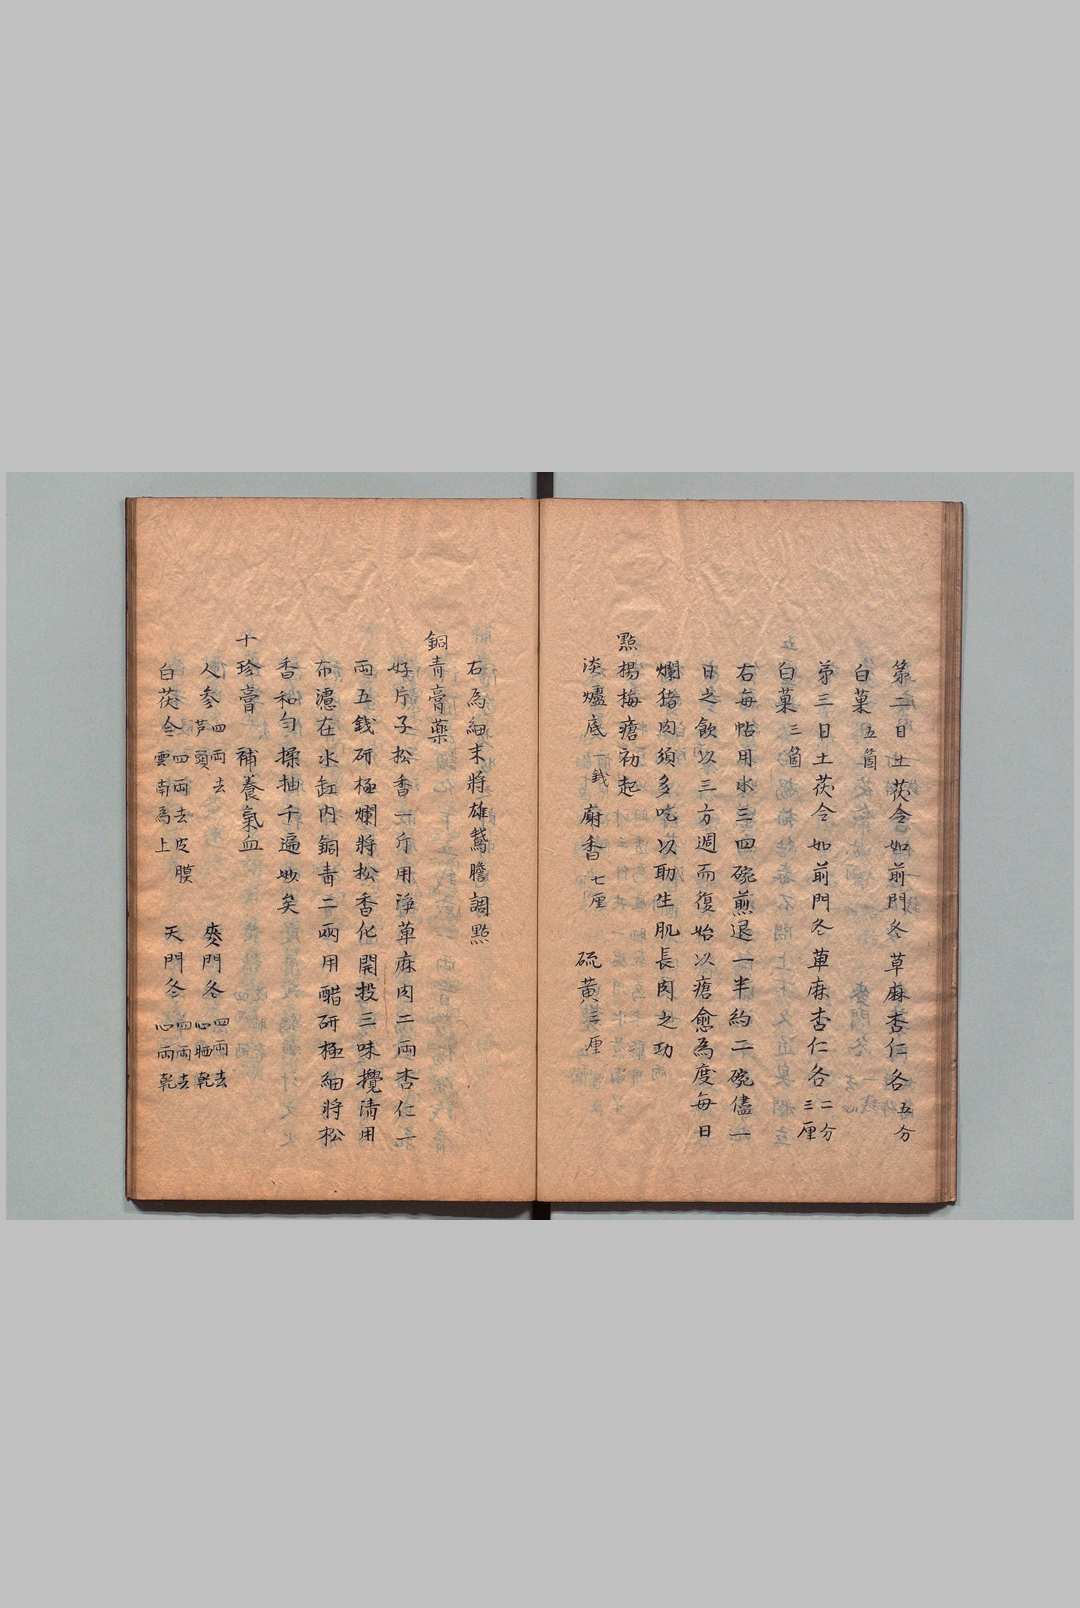 第二日土茯苓如前門冬草麻杏仁各五分
白菓五箇
第三日土茯苓如前門冬草麻杏仁各二分三厘
白菓三箇
右每帖用水三四碗煎退一半約二碗儘一
日之飲以三方週而復始以瘡愈為度每日
爛猪肉須多吃以助生肌長肉之功
點楊梅瘡初起
淡爐底一錢 麝香七厘 硫黃三厘
右為細末將雄鵞膽調點
銅青膏藥
好片子松香一斤用淨草麻肉二兩杏仁一
兩五錢研極爛將松香化開投三味攪清用
布濾在水缸内銅青二兩用醋研極細將松
香和勻揉抽千遍妙矣
十珍膏 補養氣血
人參四兩去芦頭 麥門冬四兩去心晒乾
白茯苓四兩去皮膜雲南為上 天門冬四兩去心兩乾